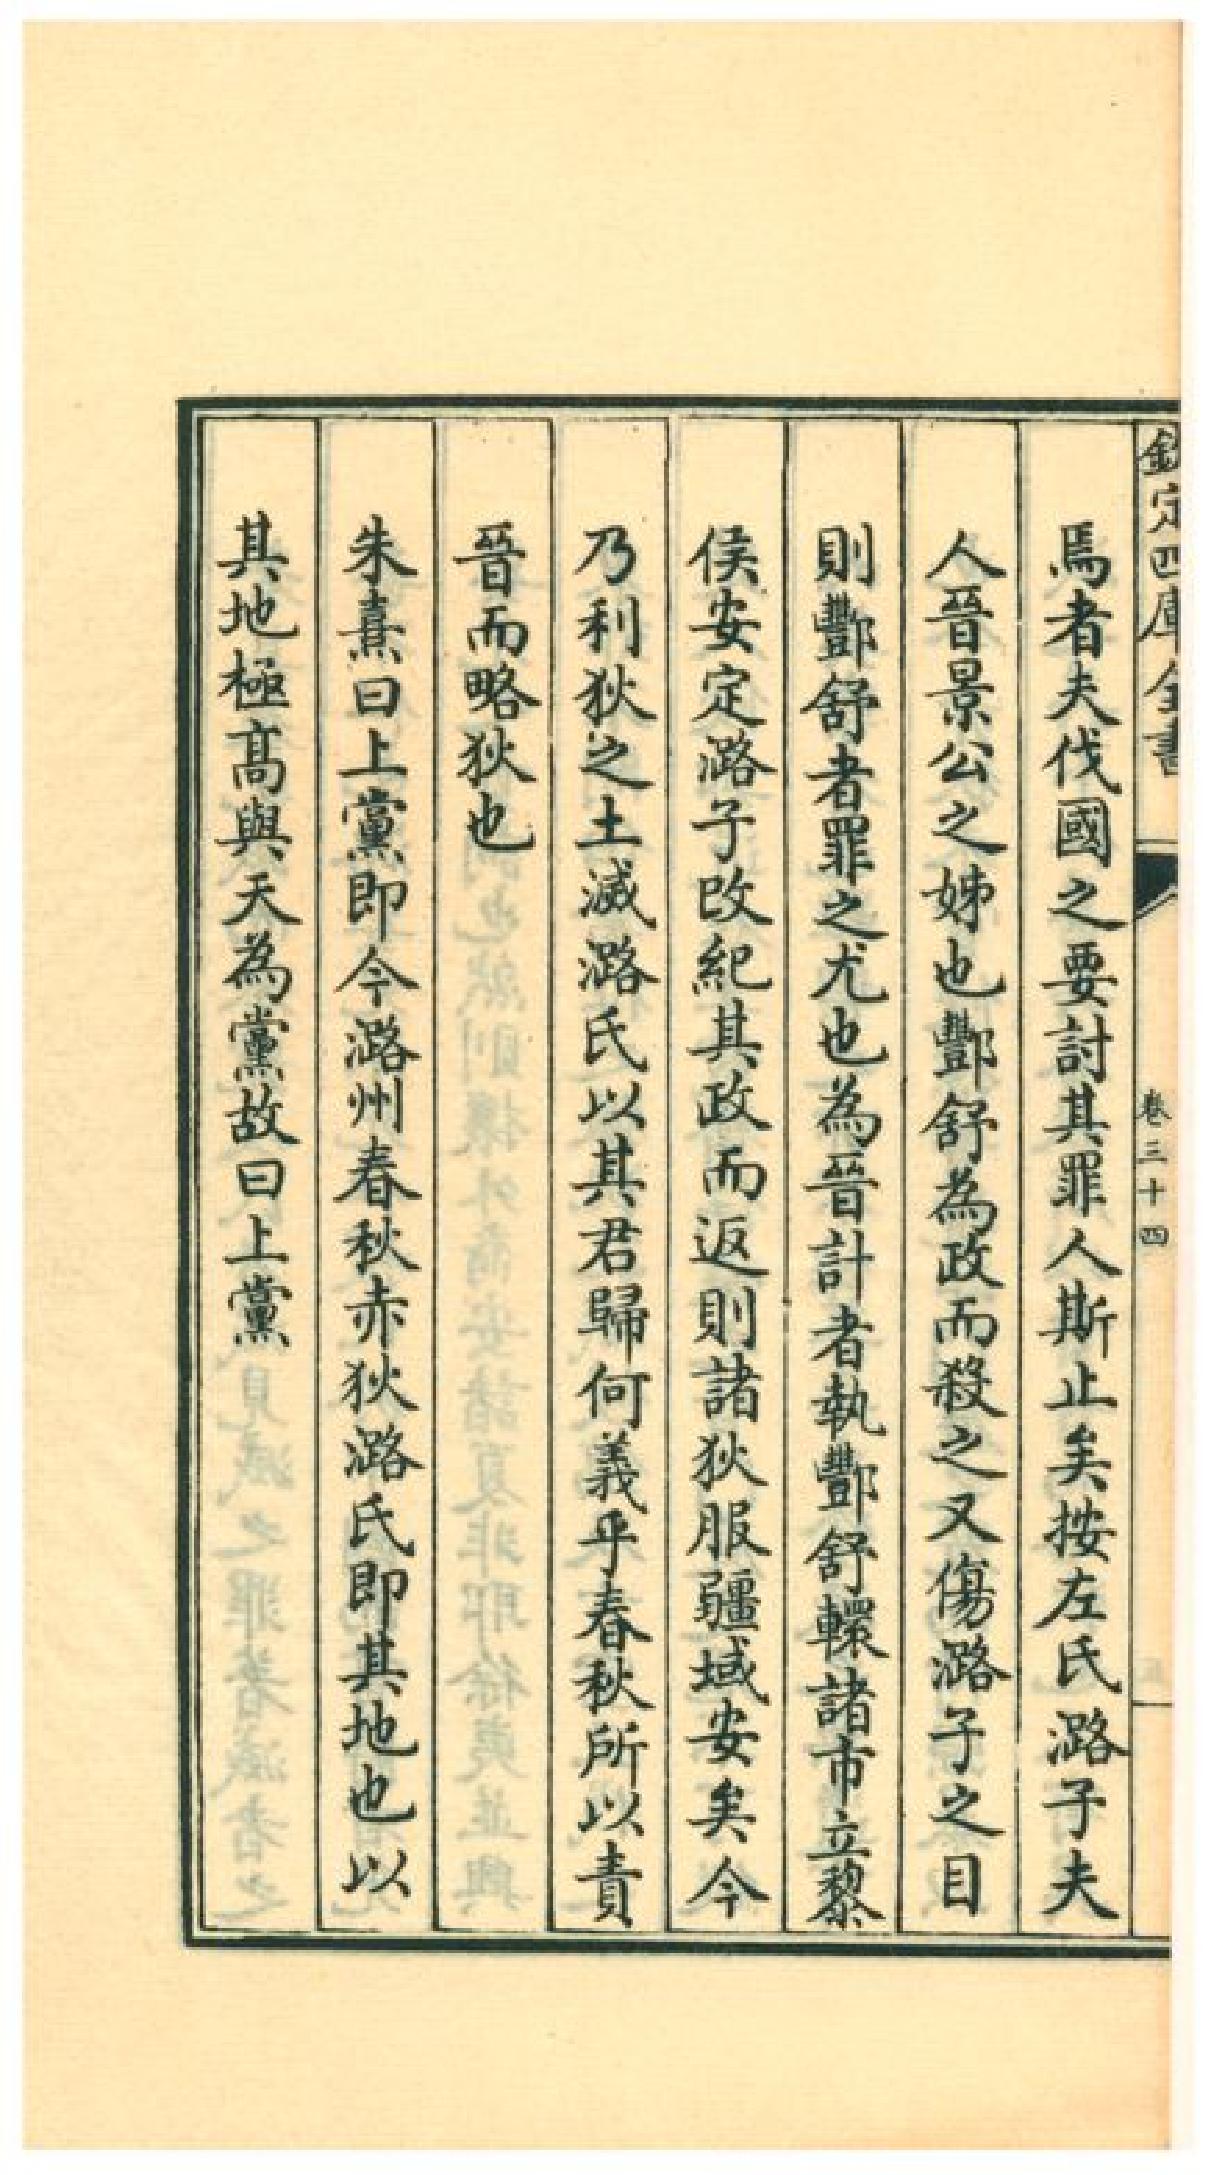 欽定四庫全書
卷三十四
焉者夫伐國之要討其罪人斯止矣按左氏潞子夫
人晉景公之姊也酆舒為政而殺之又傷潞子之目
則酆舒者罪之尤也為晉計者執酆舒轘諸市立黎
侯安定潞子改紀其政而返則諸狄服疆域安矣今
乃利狄之土滅潞氏以其君歸何義乎春秋所以責
晉而略狄也
朱熹曰上黨即今潞州春秋赤狄潞氏即其地也以
其地極髙與天為黨故曰上黨